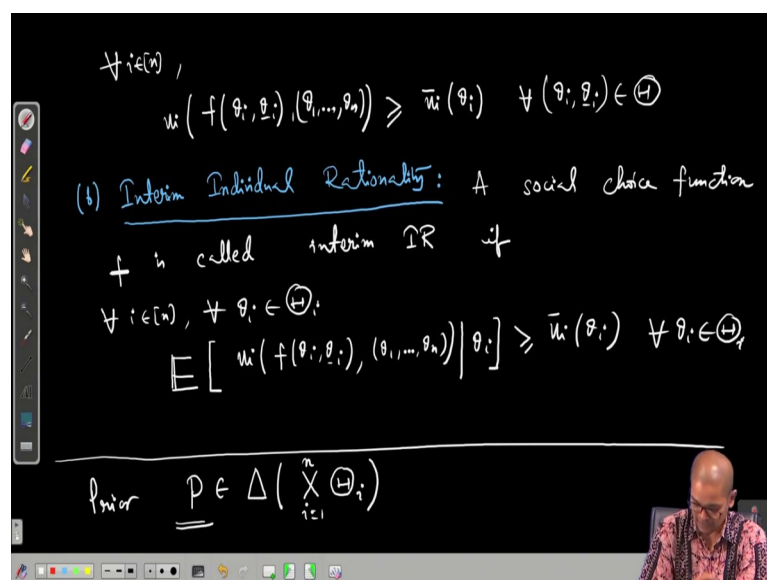 ∀ i∈[n],
ui ( f(θi, θ̲i), (θ1,...,θn) ) ⩾ ūi (θi) ∀ (θi, θ̲i) ∈ Θ
(b) Interim Individual Rationality : A social choice function
f is called interim IR if
∀ i∈[n], ∀ θi ∈ Θi
E [ ui ( f(θi, θ̲i), (θ1,...,θn) ) | θi ] ⩾ ūi (θi) ∀ θi ∈ Θi
Prior P ∈ Δ ( n X i=1 Θi )